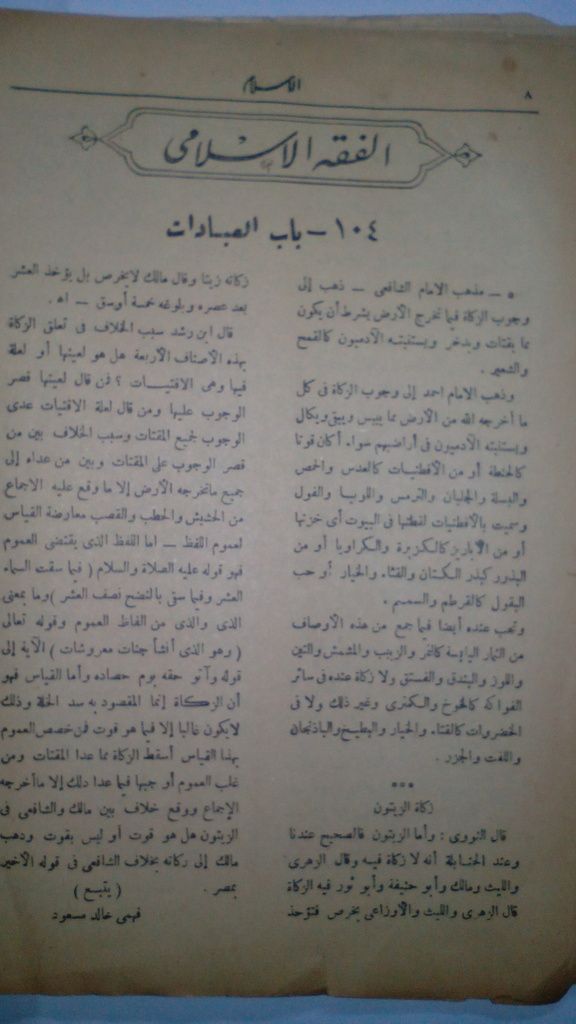 ٨
الاسلام
الفقه الاسلامى
١٠٤ - باب العبادات
٥ - مذهب الامام الشافعى - ذهب إلى
وجوب الزكاة فيما تخرج الأرض بشرط أن يكون
مما يقتات ويدخر ويستنبته الآدميون كالقمح
والشعير .
وذهب الامام احمد إلى وجوب الزكاة فى كل
ما أخرجه الله من الأرض مما ييبس ويبقى ويكال
ويستنبته الآدميون فى أراضيهم سواء أكان قوتا
كالحنطة أو من القطنيات كالعدس والحمص
والبسلة والجلبان والترمس واللوبيا والفول
وسميت بالاقطنيات لقطنها فى البيوت أى خزنها
أو من الأباريز كالكزبرة والكراويا أو من
البذور كبذر الكتان والقثاء والخيار أو حب
البقول كالقرطم والسمسم .
وتجب عنده أيضا فيما جمع من هذه الاوصاف
من الثمار اليابسة كالتمر والزبيب والمشمش والتين
واللوز والبندق والفستق ولا زكاة عنده فى سائر
الفواكه كالخوخ والكمثرى وغير ذلك ولا فى
الخضروات كالقثاء والخيار والبطيخ والباذنجان
واللفت والجزر .
***
زكاة الزيتون
قال النووى : وأما الزيتون فالصحيح عندنا
وعند الحنابلة أنه لا زكاة فيه وقال الزهرى
والليث ومالك وأبو حنيفة وأبو ثور فيه الزكاة
قال الزهرى والليث والأوزاعى يخرص فتؤخذ
زكاته زيتا وقال مالك لا يخرص بل يؤخذ العشر
بعد عصره وبلوغه خمسة أوسق - اه .
قال ابن رشد سبب الخلاف فى تعلق الزكاة
بهذه الأصناف الأربعة هل هو لعينها أو لعلة
فيها وهى الاقتيات ؟ فمن قال لعينها قصر
الوجوب عليها ومن قال لعلة الاقتيات عدى
الوجوب لجميع المقتات وسبب الخلاف بين من
قصر الوجوب على المقتات وبين من عداه إلى
جميع ما تخرجه الأرض إلا ما وقع عليه الاجماع
من الحشيش والحطب والقصب معارضة القياس
لعموم اللفظ - اما اللفظ الذى يقتضى العموم
فهو قوله عليه الصلاة والسلام ( فيما سقت السماء
العشر وفيما سقى بالنضح نصف العشر ) وما بمعنى
الذى والذى من الفاظ العموم وقوله تعالى
( وهو الذى أنشأ جنات معروشات ) الآية إلى
قوله وآتو حقه يوم حصاده وأما القياس فهو
أن الزكاة إنما المقصود به سد الخلة وذلك
لا يكون غالبا إلا فيما هو قوت فمن خصص العموم
بهذا القياس أسقط الزكاة مما عدا المقتات ومن
غلب العموم أوجبها فيما عدا ذلك إلا ما أخرجه
الإجماع ووقع خلاف بين مالك والشافعى فى
الزيتون هل هو قوت أو ليس بقوت وذهب
مالك إلى زكاته بخلاف الشافعى فى قوله الأخير
بمصر . ( يتبع )
فهمى خالد مسعود